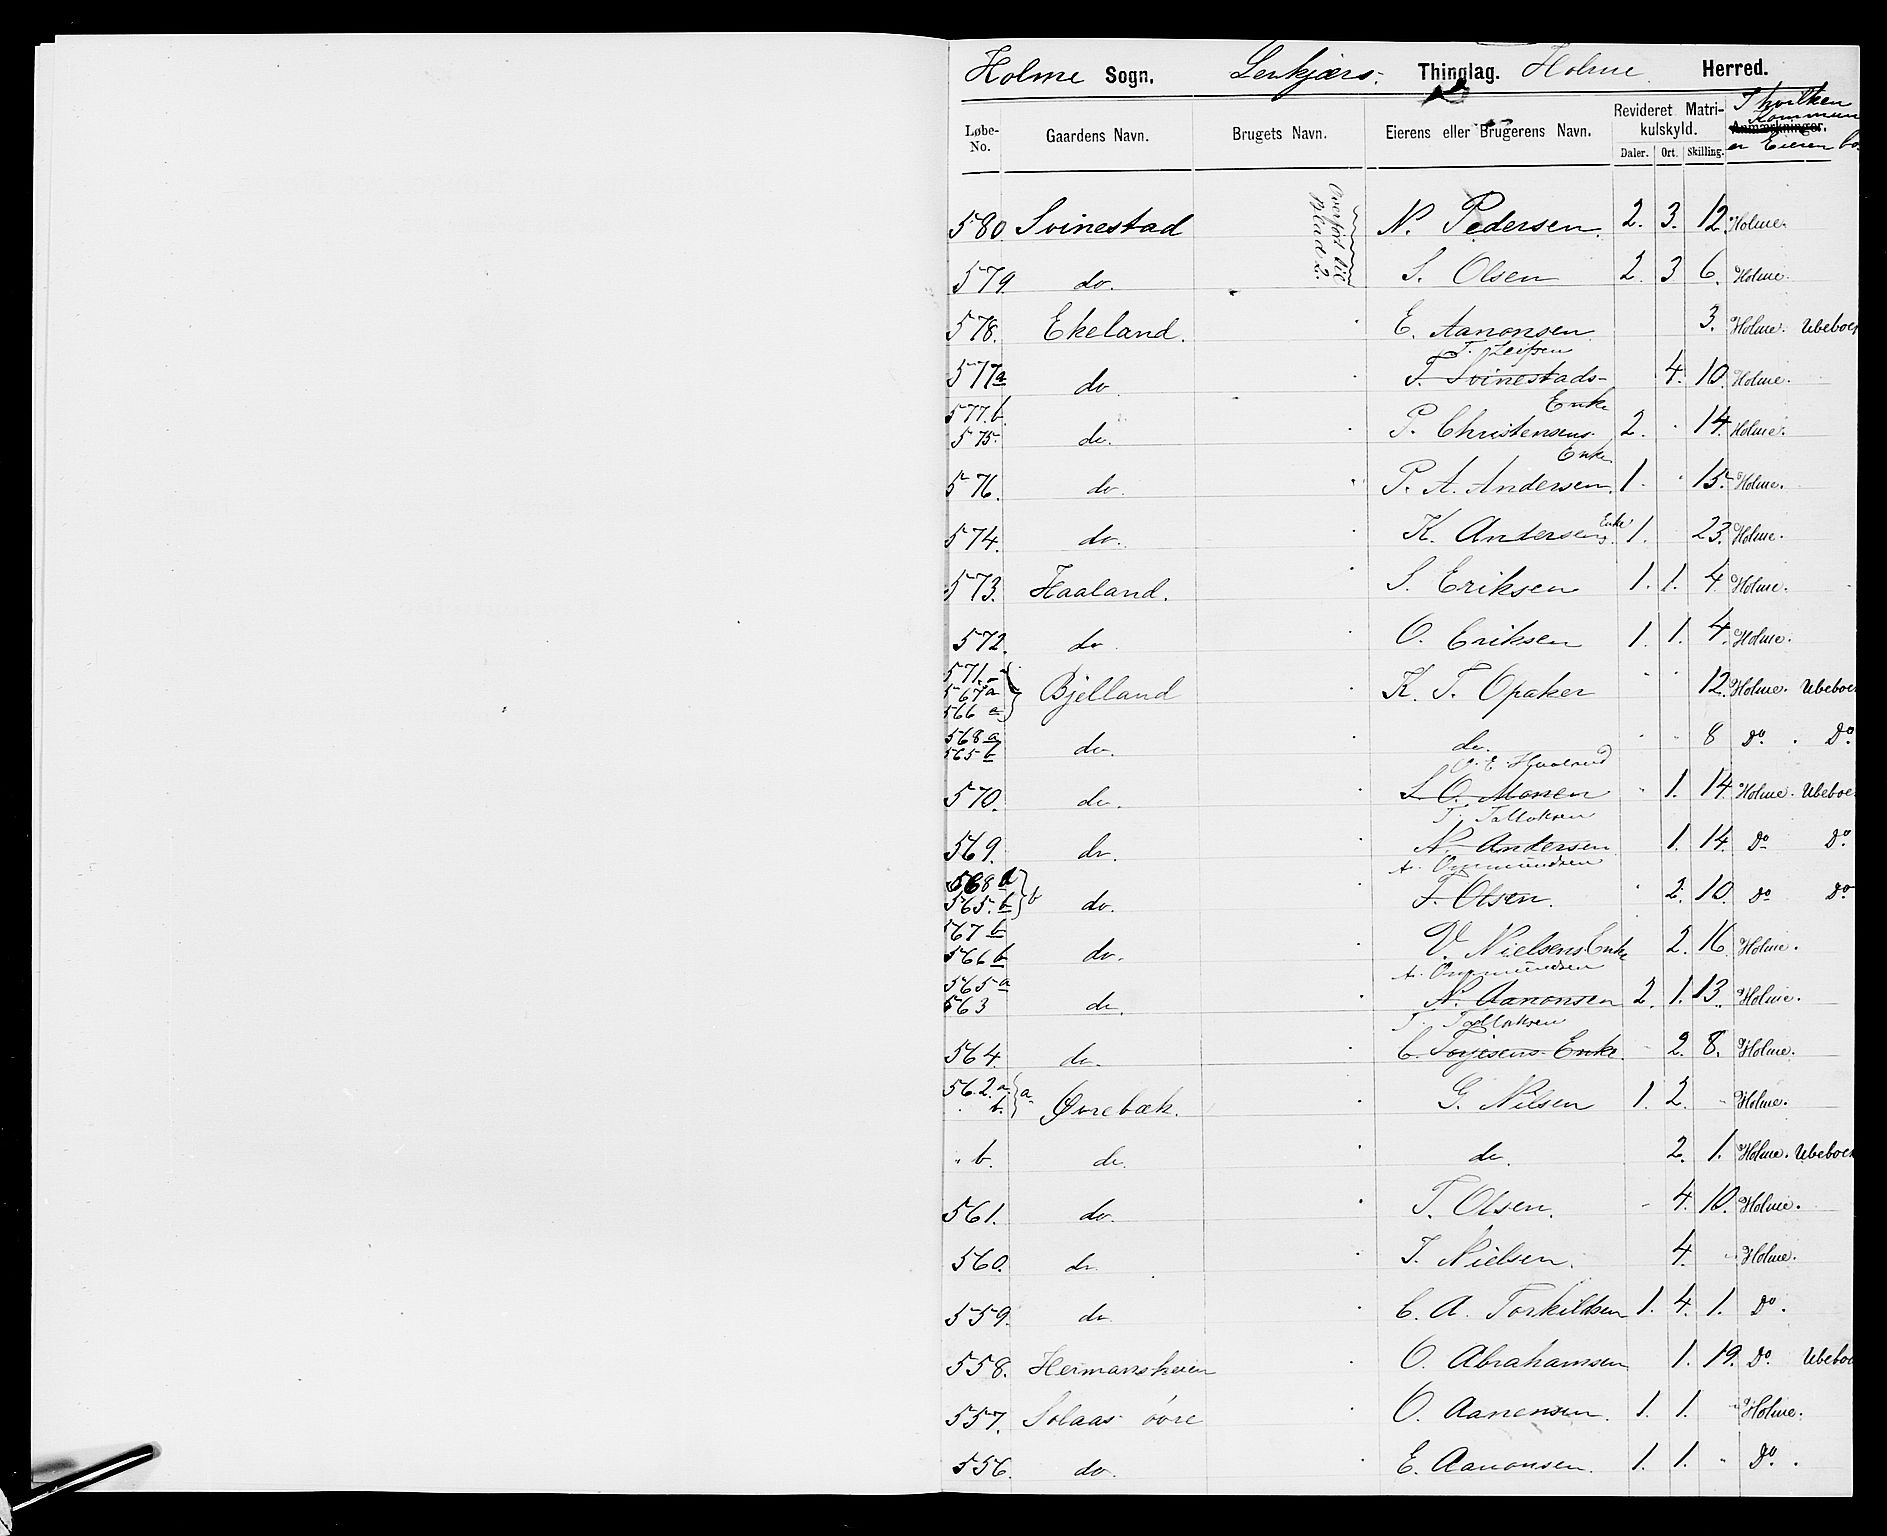 Holme Sogn. Lenkjærs. Thinglag. Holme Herred.
Løbe-No. Gaardens Navn. Brugets Navn. Eierens eller Brugerens Navn. Revideret Matrikulskyld. Daler. Ort. Skilling. Anmærkninger. I hvilken Kommune er Eieren bo
Overført til Blad 2.
580 Svinestad N. Pedersen. 2. 3. 12 Holme.
579. do. S. Olsen 2. 3 6. Holme.
578. Ekeland. E. Aanonsen 3. Holme. Ubeboet
T. Leifsen
577a do T. Svinestads- Enke 4. 10. Holme.
577.b.
575. do. P. Christensens Enke 2. 14. Holme.
576. do. P. A. Andersen. 1. 15. Holme.
574. do. K. Andersens Enke 1. 23. Holme.
573. Haaland. S. Eriksen 1. 1. 4. Holme.
572. do. O. Eriksen 1. 1. 4. Holme.
571.
567a
566 a Bjelland K. T. Opaker 12. Holme. Ubeboet
568a
565b do. do. 8 Do. Do.
O. E. Haaland
570. do. S. O. Monen 1. 14. Holme. Ubeboet
T. Tallaksen
569. do. N. Andersen 1. 14. Do Do.
A. Ommundsen
568 a
565. b } b do. T. Olsen. 2. 10. Do Do
567 b
566 b do. V. Nielsens Enke 2. 16. Holme.
A. Ommundsen
565 a
563 do. N. Aanonsen 2. 1. 13. Holme.
T. Tallaksen
564. do. C. Torjesens Enke. 2. 8. Holme.
562. a.
b. } a Øvrebæk. G. Nilsen 1. 2. Holme.
" b. do. do. 2. 1. Holme. Ubeboet
561. do. T. Olsen. 4. 10. Holme.
560. do. J. Nielsen. 4. Holme.
559. do. C. A. Torkildsen 1. 4. 1. Do.
558. Heimansheien O. Abrahamsen 1. 19. Do. Ubeboet
557. Solaas øvre O. Aanensen. 1. 1. Holme.
556. do. E. Aanonsen. 1. 1. " Do.